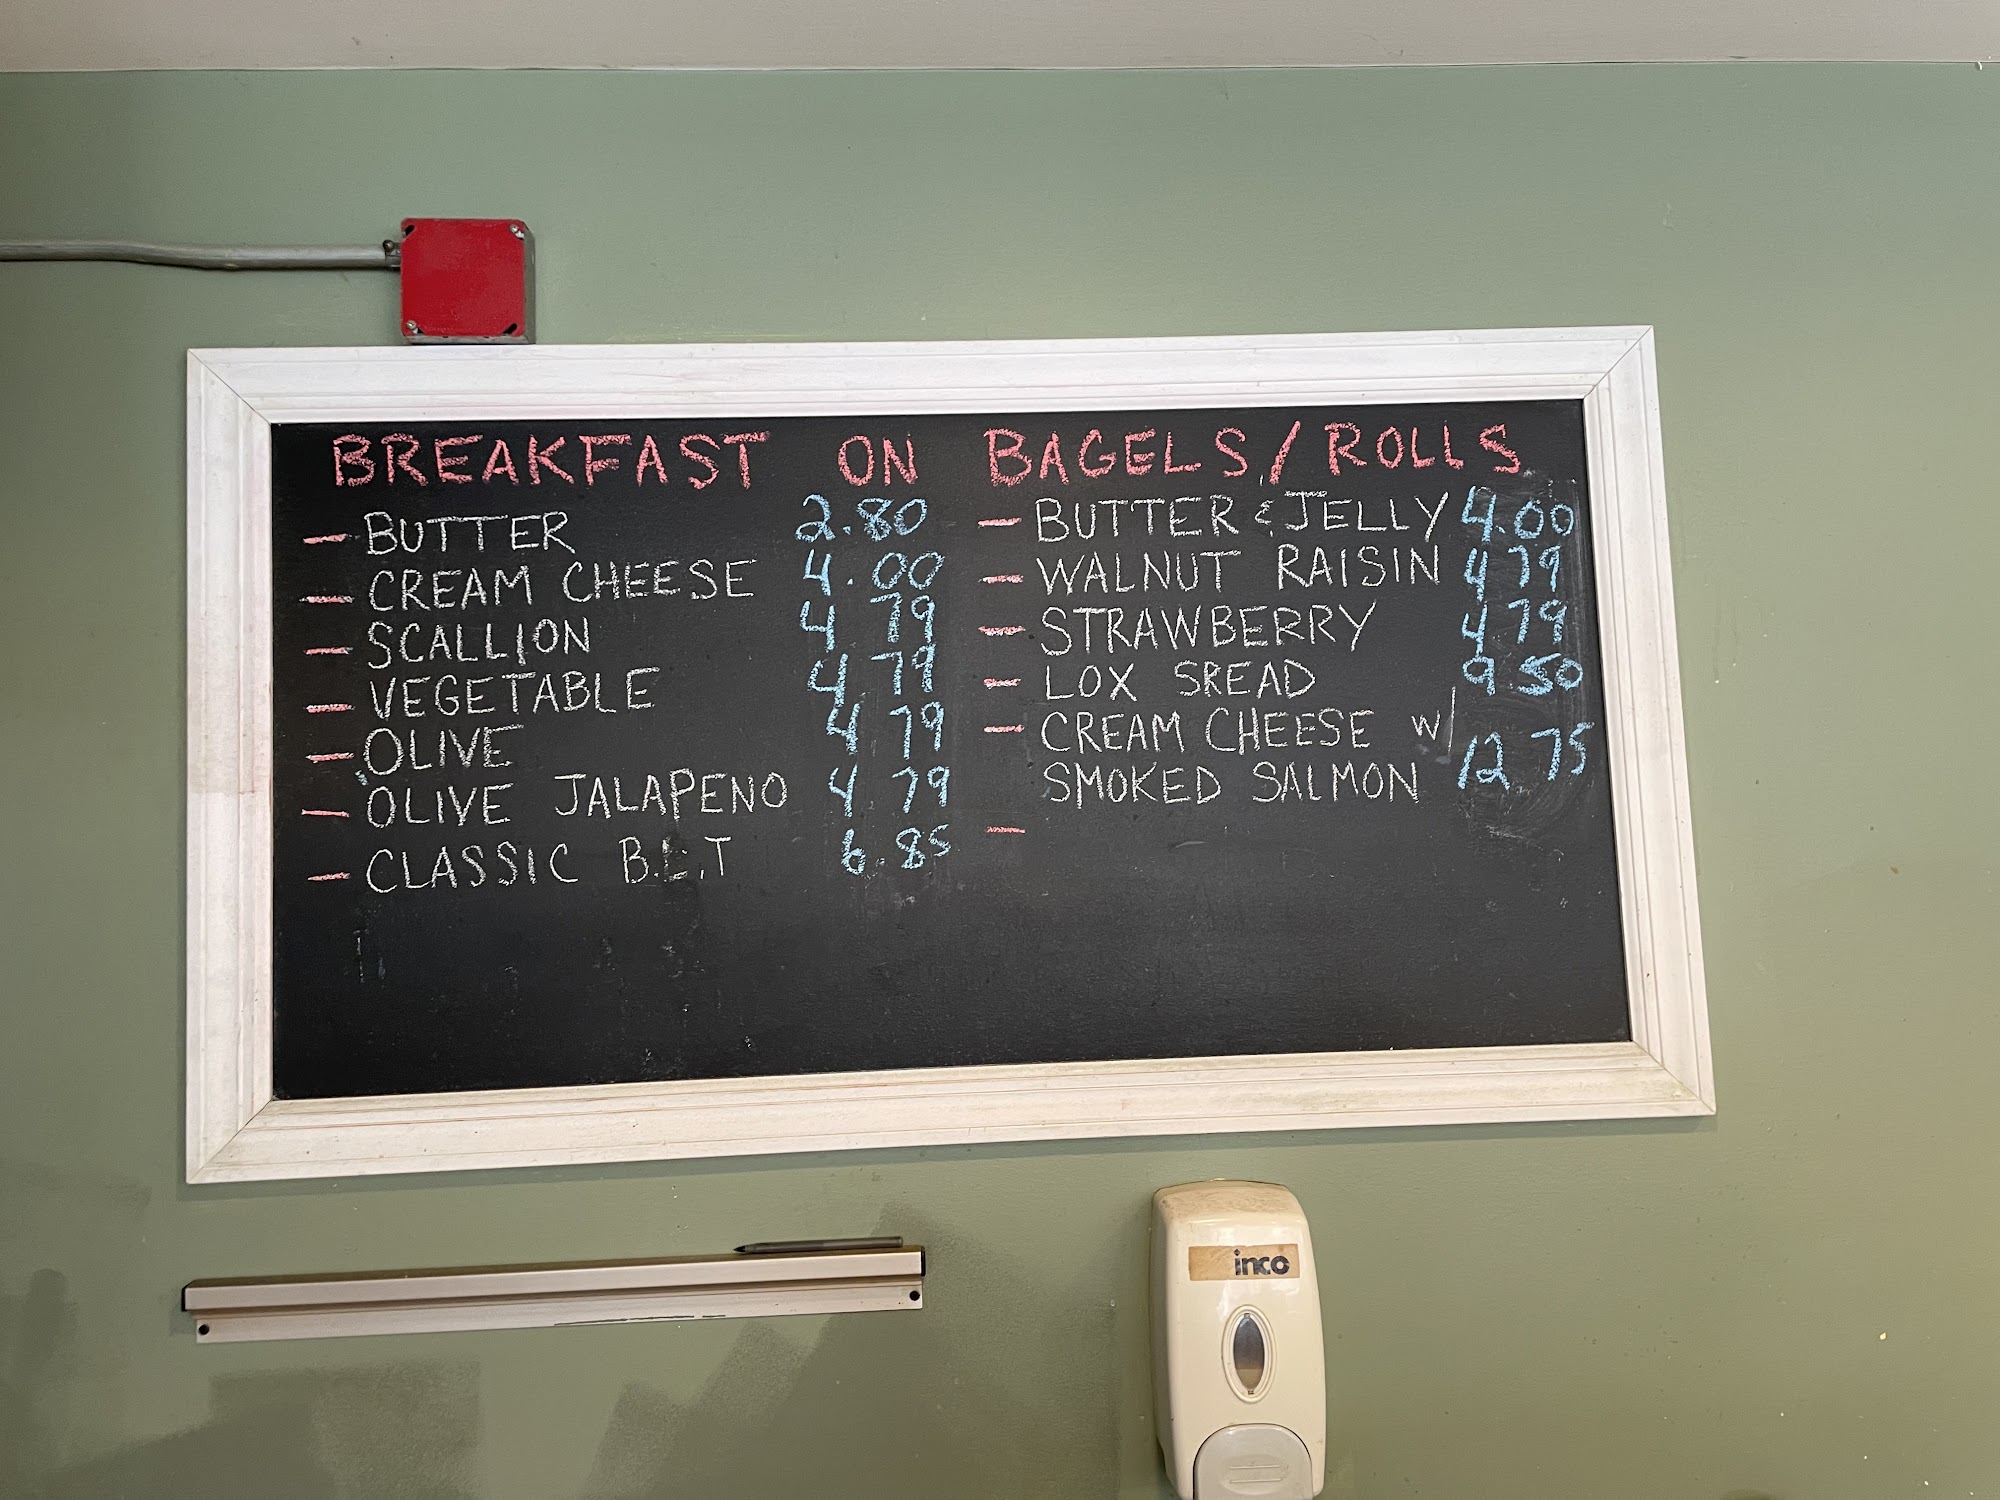 BREAKFAST ON BAGELS/ROLLS
- BUTTER 2.80
- CREAM CHEESE 4.00
- SCALLION 4 79
- VEGETABLE 4 79
- OLIVE 4 79
- OLIVE JALAPENO 4 79
- CLASSIC B.L.T 6.85
- BUTTER & JELLY 4.00
- WALNUT RAISIN 4 79
- STRAWBERRY 4 79
- LOX SREAD 9 50
- CREAM CHEESE W/
SMOKED SALMON 12 75
-
inco